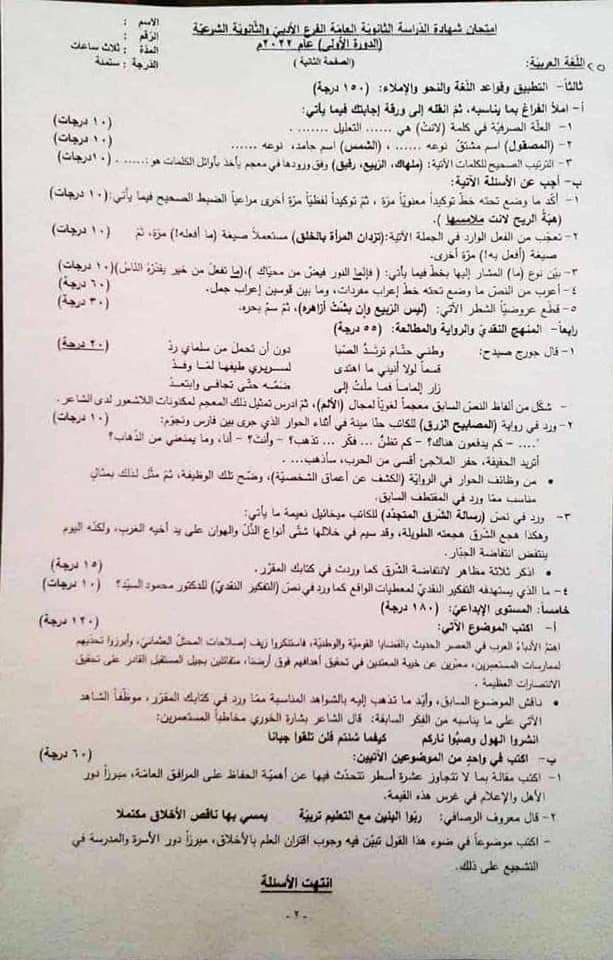 امتحان شهادة الدراسة الثانوية العامة الفرع الأدبي والثانوية الشرعية
الاسم :
(الدورة الأولى) عام ٢٠٢٢م
الرقم :
(الصفحة الثانية)
المدة : ثلاث ساعات
اللغة العربية:
الدرجة : ستمئة
ثالثاً- التطبيق وقواعد اللغة والنحو والإملاء: (١٥٠ درجة)
أ- املأ الفراغ بما يناسبه، ثمّ انقله إلى ورقة إجابتك فيما يأتي:
١- العلّة الصرفيّة في كلمة (لانتْ) هي ...... التعليل ....... . (١٠ درجات)
٢- (المصقول) اسم مشتقّ نوعه ...... ، (الشمس) اسم جامد، نوعه ...... (١٠ درجات)
٣- الترتيب الصحيح للكلمات الآتية: (ملهاك، الربيع، رفيق) وفق ورودها في معجم يأخذ بأوائل الكلمات هو:...... . (١٠درجات)
ب- أجب عن الأسئلة الآتية:
١- أكّد ما وضع تحته خطّ توكيداً معنويّاً مرّة ، ثمّ توكيداً لفظيّاً مرّة أخرى مراعياً الضبط الصحيح فيما يأتي: (١٠ درجات)
(هبّةُ الريح لانت ملامسها ).
٢- تعجّب من الفعل الوارد في الجملة الآتية:(تزدان المرأة بالخلق) مستعملاً صيغة (ما أفعله!) مرّة، ثمّ (١٠ درجات)
صيغة (أفعل به!) مرّة أخرى.
٣- بيّن نوع (ما) المشار إليها بخطّ فيما يأتي: ( فإنّما النور فيضٌ من محيّاك )،(ما تفعل من خير يقدّره النّاسُ) (١٠ درجات)
٤- أعرب من النصّ ما وضع تحته خطّ إعراب مفردات، وما بين قوسين إعراب جمل. (٦٠ درجة)
٥- قطّع عروضيّاً الشطر الآتي: (ليس الربيع وإن بشّت أزاهره)، ثمّ سمّ بحره. (٣٠ درجة)
رابعاً- المنهج النقديّ والرواية والمطالعة: (٥٥ درجة)
١- قال جورج صيدح: وطني حتّام ترتدّ الصّبا دون أن تحمل من سلماي ردّ (٢٠ درجة)
قسماً لولا أنيني ما اهتدى لسريري طيفها لمّا وفدْ
زار إلماماً فما ملْتُ إلى ضمّه حتّى تجافى وابتعدْ
- شكّل من ألفاظ النصّ السابق معجماً لغويّاً لمجال (الألم)، ثمّ ادرس تمثيل ذلك المعجم لمكنونات اللاشعور لدى الشاعر.
٢- ورد في رواية (المصابيح الزرق) للكاتب حنّا مينة في أثناء الحوار الذي جرى بين فارس ونجوم: (١٠ درجات)
'.... - كم يدفعون هناك؟ - كم تظنّ... فكّر ... تذهب؟ - وأنتَ؟ - أنا، وما يمنعني من الذّهاب؟
أتريد الحقيقة، حفر الملاجئ أقسى من الحرب، سأذهب... .
• من وظائف الحوار في الرواية (الكشف عن أعماق الشخصيّة)، وضّح تلك الوظيفة، ثمّ مثّل لذلك بمثالٍ
مناسب ممّا ورد في المقتطف السابق.
٣- ورد في نصّ (رسالة الشرق المتجدّد) للكاتب ميخائيل نعيمة ما يأتي:
وهكذا هجع الشرق هجعته الطويلة، وقد سيم في خلالها شتّى أنواع الذّلّ والهوان على يد أخيه الغرب، ولكنّه اليوم
ينتفض انتفاضة الجبّار.
• اذكر ثلاثة مظاهر لانتفاضة الشّرق كما وردت في كتابك المقرّر. (١٥ درجة)
٤- ما الذي يستهدفه التفكير النقديّ لمعطيات الواقع كما ورد في نصّ (التفكير النقديّ) للدكتور محمود السيّد؟ (١٠ درجات)
خامساً: المستوى الإبداعيّ: (١٨٠ درجة)
أ- اكتب الموضوع الآتي: (١٢٠ درجة)
اهتمّ الأدباء العرب في العصر الحديث بالقضايا القوميّة والوطنيّة، فاستنكروا زيف إصلاحات المحتلّ العثمانيّ، وأبرزوا تحدّيهم
لممارسات المستعمرين، معبّرين عن خيبة المعتدين في تحقيق أهدافهم فوق أرضنا، متفائلين بجيل المستقبل القادر على تحقيق
الانتصارات العظيمة .
• ناقش الموضوع السابق، وأيّد ما تذهب إليه بالشواهد المناسبة ممّا ورد في كتابك المقرّر، موظّفاً الشاهد
الآتي على ما يناسبه من الفكر السابقة: قال الشاعر بشارة الخوري مخاطباً المستعمرين:
انشروا الهول وصبّوا ناركم كيفما شئتم فلن تلقوا جبانا
ب- اكتب في واحدٍ من الموضوعين الآتيين: (٦٠ درجة)
١- اكتب مقالة بما لا تتجاوز عشرة أسطر تتحدّث فيها عن أهميّة الحفاظ على المرافق العامّة، مبرزاً دور
الأهل والإعلام في غرس هذه القيمة.
٢- قال معروف الرصافي: ربّوا البنين مع التعليم تربيّة يمسي بها ناقص الأخلاق مكتملا
- اكتب موضوعاً في ضوء هذا القول تبيّن فيه وجوب اقتران العلم بالأخلاق، مبرزاً دور الأسرة والمدرسة في
التشجيع على ذلك.
انتهت الأسئلة
- ٢ -